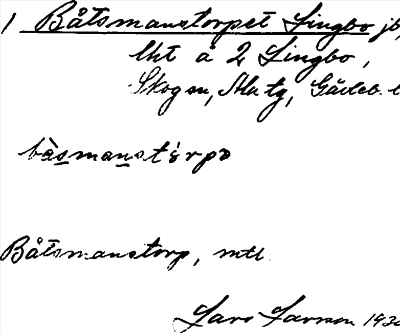 1 Båtsmanstorpet Lingbo jb,
lht å 2 Lingbo,
Skogsn, Gävleb. l
bàsmanst
Båtsmanstorp, mtl
Lars Larsson 193